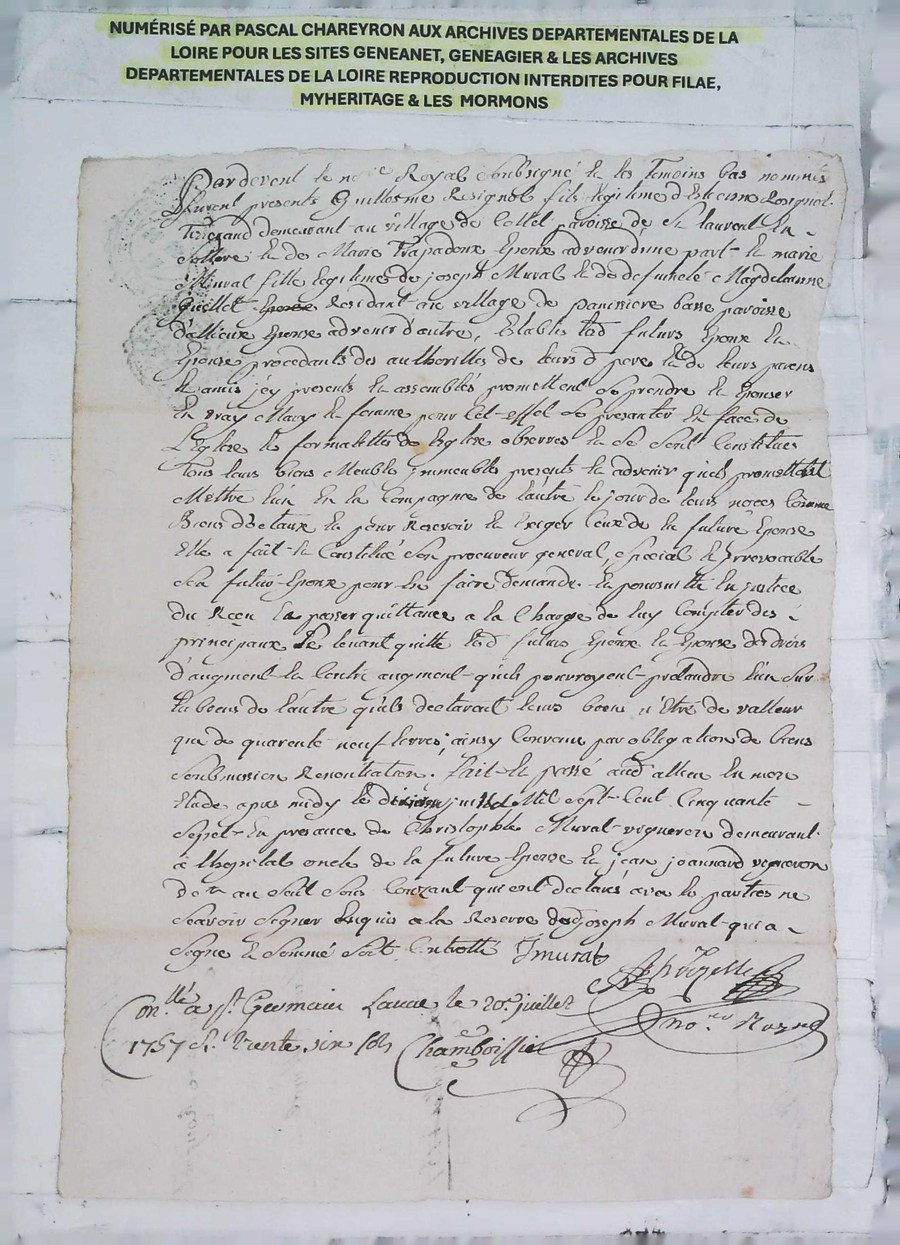 NUMÉRISÉ PAR PASCAL CHAREYRON AUX ARCHIVES DEPARTEMENTALES DE LA
LOIRE POUR LES SITES GENEANET, GENEAGIER & LES ARCHIVES
DEPARTEMENTALES DE LA LOIRE REPRODUCTION INTERDITES POUR FILAE,
MYHERITAGE & LES MORMONS
Pardevent le no.re Royal soubsigné et les temoins bas nommés
furent presents Guillesme Rosignol fils legitime d'Estienne Rosignol
Tisserand demeurant au village de paroisse de St laurent en
Sollore et de Marie Trapadoux Epoux advenir d'une part et marie
Mural fille legitime de joseph Mural et de deffunte Magdelainne
Quillet Residant au village de paninsiere basse paroisse
d'allieux Epouse advenir d'autre, Establis lesd futurs Epoux Et
Epouse procedants des authorittes de leurs d pere Et de leurs parens
Et amis jcy presents Et assemblés promettent prendre Et Epouser
En vray Mary Et femme pour Cet effet se presanter En face de
L'Eglise les formalittes de Eglise observes Et se sont Constitues
Tous leurs biens Meubles jmmeubles presents Et advenir quils promettent
Mettre l'un En la Compagnie de l'autre le jour de leurs noces Comme
Biens dectaux Et pour Recevoir Et Exiger Ceux de la future Epouse
Elle a fait Et Constitué son procureur general, special Et jrrevocable
Son futur Epoux pour En faire demande Et poursuitte En justice
du Receu En passer quittance a la Charge de luy Compter des
principaux se tenant quitte lesd futurs Epoux Et Epouse des droits
d'augment Et Contre augment quils pourroyent pretandre l'un sur
les biens de l'autre quils declarait leurs biens n'Etre de valleur
que de quarente neuf livres; ainsy Convenu par obligation de biens
Soubmission Renontiation. fait Et passé aud allieu En mon
Etude apres midy le juillet Mil Sept Cent Cinquante
Sepet En presance de Christophle Mural vigneron demeurant
à lhopital oncle de la future Epouse Et jean joannard vigneron
de au Sail Sous Couzant qui ont declaré avec les parties ne
Scavoir Signer Enquis a la Reserve dud joseph Mural qui a
Signe Et Sommé Soit Controllé Jmurat
no.re Royal
Con.llé a St Germain Laval le 20e juillet
1757 R. trente six sols Chamboissier